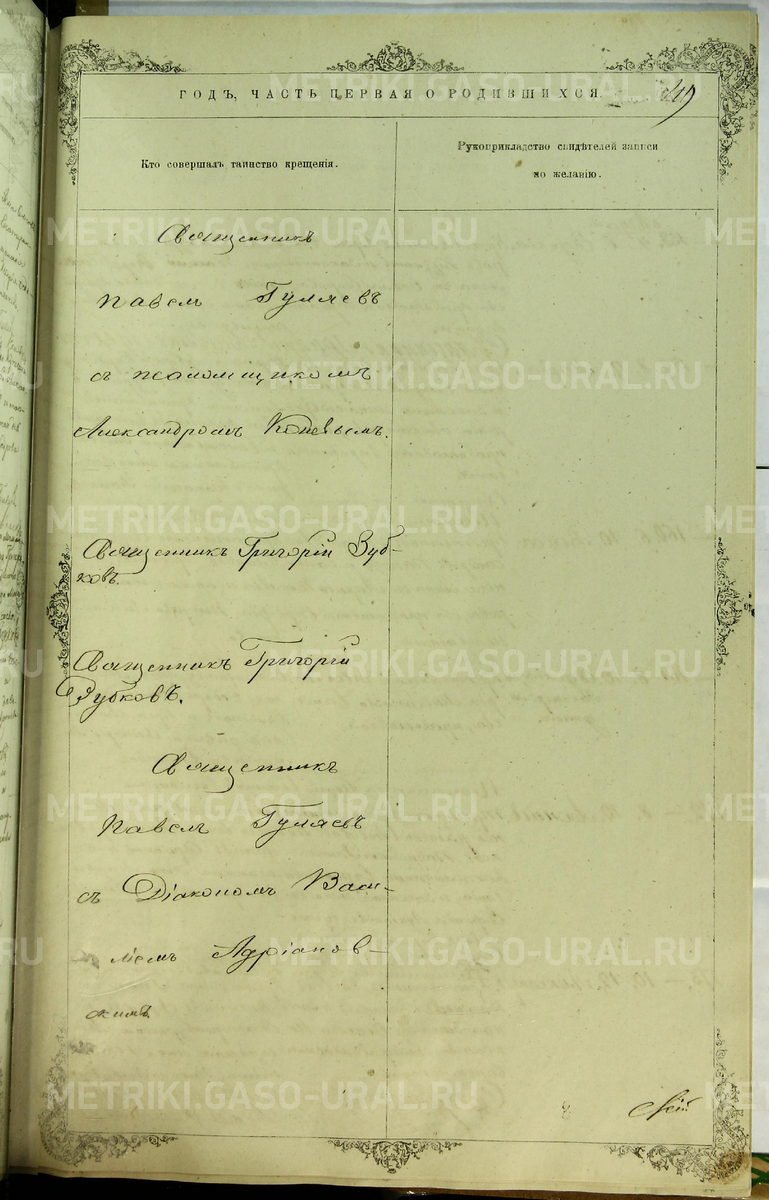 ГОДЪ, ЧАСТЬ ПЕРВАЯ О РОДИВШИХСЯ.
Кто совершалъ таинство крещенія.
Рукоприкладство свидѣтелей записи
по желанію.
Священникъ
Павелъ Гуляевъ
съ псаломщикомъ
Александромъ
Священникъ Григорій Зуб-
ковъ.
Священникъ Григорій
Зубковъ.
Священникъ
Павелъ Гуляевъ
съ Діакономъ Васи-
ліемъ Адріанов-
скимъ
METRIKI.GASO-URAL.RU